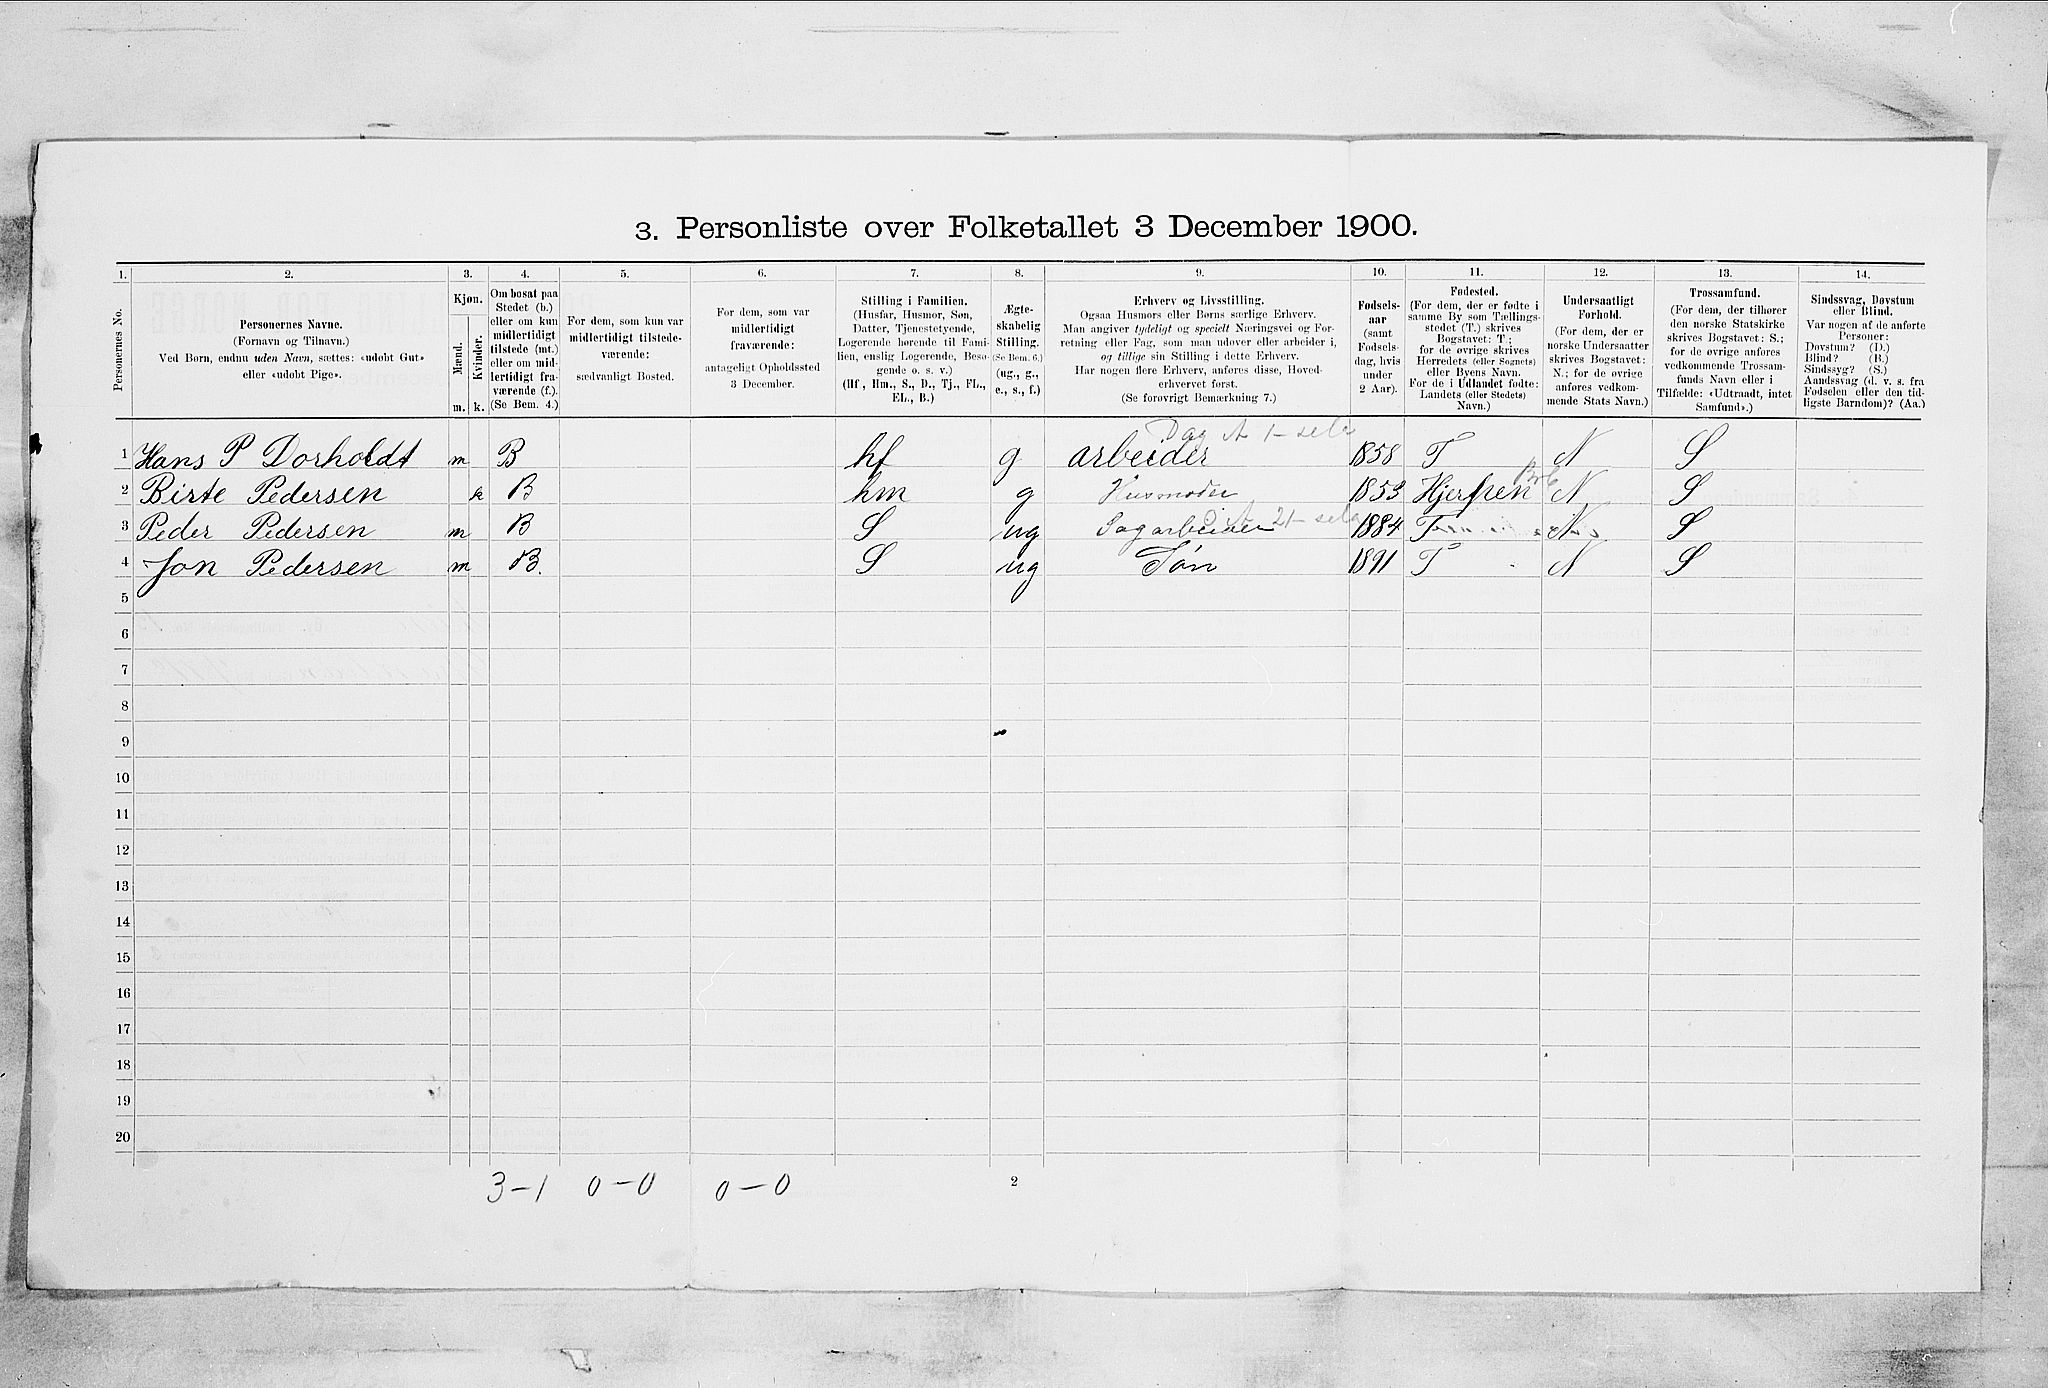 3. Personliste over Folketallet 3 December 1900.
1. 2. 3. 4. 5. 6. 7. 8. 9. 10. 11. 12. 13. 14.
Personernes No.
Personernes Navne.
(Fornavn og Tilnavn.)
Ved Børn, endnu uden Navn, sættes: «udøbt Gut»
eller «udøbt Pige».
Kjøn.
Mænd.
Kvinder.
m. k.
Om bosat paa
Stedet (b.)
eller om kun
midlertidigt
tilstede (mt.)
eller om mid-
lertidigt fra-
værende (f.).
(Se Bem. 4.)
For dem, som kun var
midlertidigt tilstede-
værende:
sædvanligt Bosted.
For dem, som var
midlertidigt
fraværende:
antageligt Opholdssted
3 December.
Stilling i Familien.
(Husfar, Husmor, Søn,
Datter, Tjenestetyende,
Logerende hørende til Fami-
lien, enslig Logerende, Besø-
gende o. s. v.)
(Hf., Hm., S., D., Tj., FL.,
EL., B.)
Ægte-
skabelig
Stilling.
(Se Bem. 6.)
(ug., g.,
e., s., f.)
Erhverv og Livsstilling.
Ogsaa Husmors eller Børns særlige Erhverv.
Man angiver tydeligt og specielt Næringsvei og For-
retning eller Fag, som man udøver eller arbeider i,
og tillige sin Stilling i dette Erhverv.
Har nogen flere Erhverv, anføres disse, Hoved-
erhvervet først.
(Se forøvrigt Bemærkning 7.)
Fødsels-
aar
(samt
Fødsels-
dag, hvis
under
2 Aar).
Fødested.
(For dem, der er fødte i
samme By som Tællings-
stedet (T.) skrives
Bogstavet: T.;
for de øvrige skrives
Herredets (eller Sognets)
eller Byens Navn.
For de i Udlandet fødte:
Landets (eller Stedets)
Navn.)
Undersaatligt
Forhold.
(For dem, der er
norske Undersaatter
skrives Bogstavet:
N.; for de øvrige
anføres vedkom-
mende Stats Navn.)
Trossamfund.
(For dem, der tilhører
den norske Statskirke
skrives Bogstavet: S.;
for de øvrige anføres
vedkommende Trossam-
funds Navn eller i
Tilfælde: «Udtraadt, intet
Samfund».)
Sindssvag, Døvstum
eller Blind.
Var nogen af de anførte
Personer:
Døvstum? (D.)
Blind? (B.)
Sindssyg? (S.)
Aandssvag (d. v. s. fra
Fødselen eller den tid-
ligste Barndom)? (Aa.)
Dag
1 Hans P Dorholdt m B hf g arbeider 1858 T N S
2 Birte Pedersen k B hm g Husmoder 1853 Hjerpen N S
3 Peder Pedersen m B S ug Sagarbeider 1884 T N S
4 Jon Pedersen m B. S ug Søn 1891 T N S
5
6
7
8
9
10
11
12
13
14
15
16
17
18
19
20
3-1 0-0 0-0
2